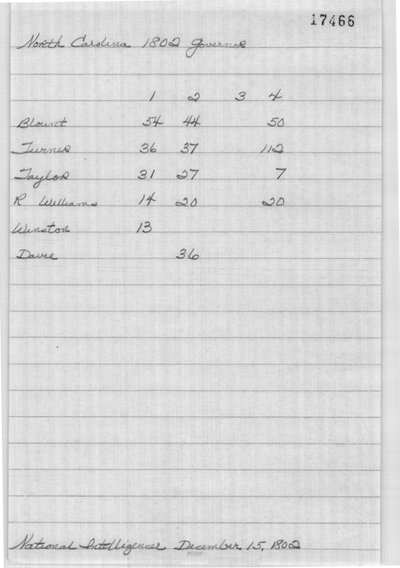 17466
North Carolina 1802 Governor
1 2 3 4
Blount 54 44 50
Turner 36 37 112
Taylor 31 27 7
R Williams 14 20 20
Winston 13
Davie 36
National Intelligencer December 15, 1802